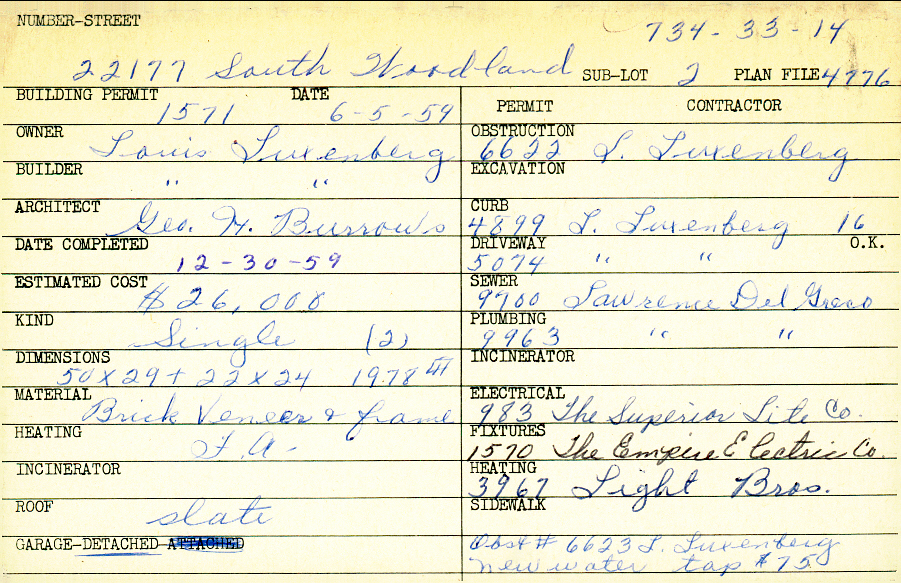 NUMBER-STREET 734-33-14
22177 South Woodland SUB-LOT 2 PLAN FILE 4776
BUILDING PERMIT DATE
1571 6-5-59
OWNER Louis Luxenberg
BUILDER " "
ARCHITECT Geo. H. Burrows
DATE COMPLETED 12-30-59
ESTIMATED COST $26,000
KIND Single (2)
DIMENSIONS 50 x 29 + 22 x 24 1978
MATERIAL Brick Veneer & frame
HEATING F.A.
INCINERATOR
ROOF slate
GARAGE-DETACHED-ATTACHED
PERMIT CONTRACTOR
OBSTRUCTION 6622 L. Luxenberg
EXCAVATION
CURB 4899 L. Luxenberg 16
DRIVEWAY O.K.
5074 " "
SEWER 9700 Lawrence Del Greco
PLUMBING 9963 " "
INCINERATOR
ELECTRICAL 983 The Superior Lite Co.
FIXTURES 1570 The Empire Electric Co.
HEATING 3967 Light Bros.
SIDEWALK
Obst # 6623 L. Luxenberg
new water tap # 75